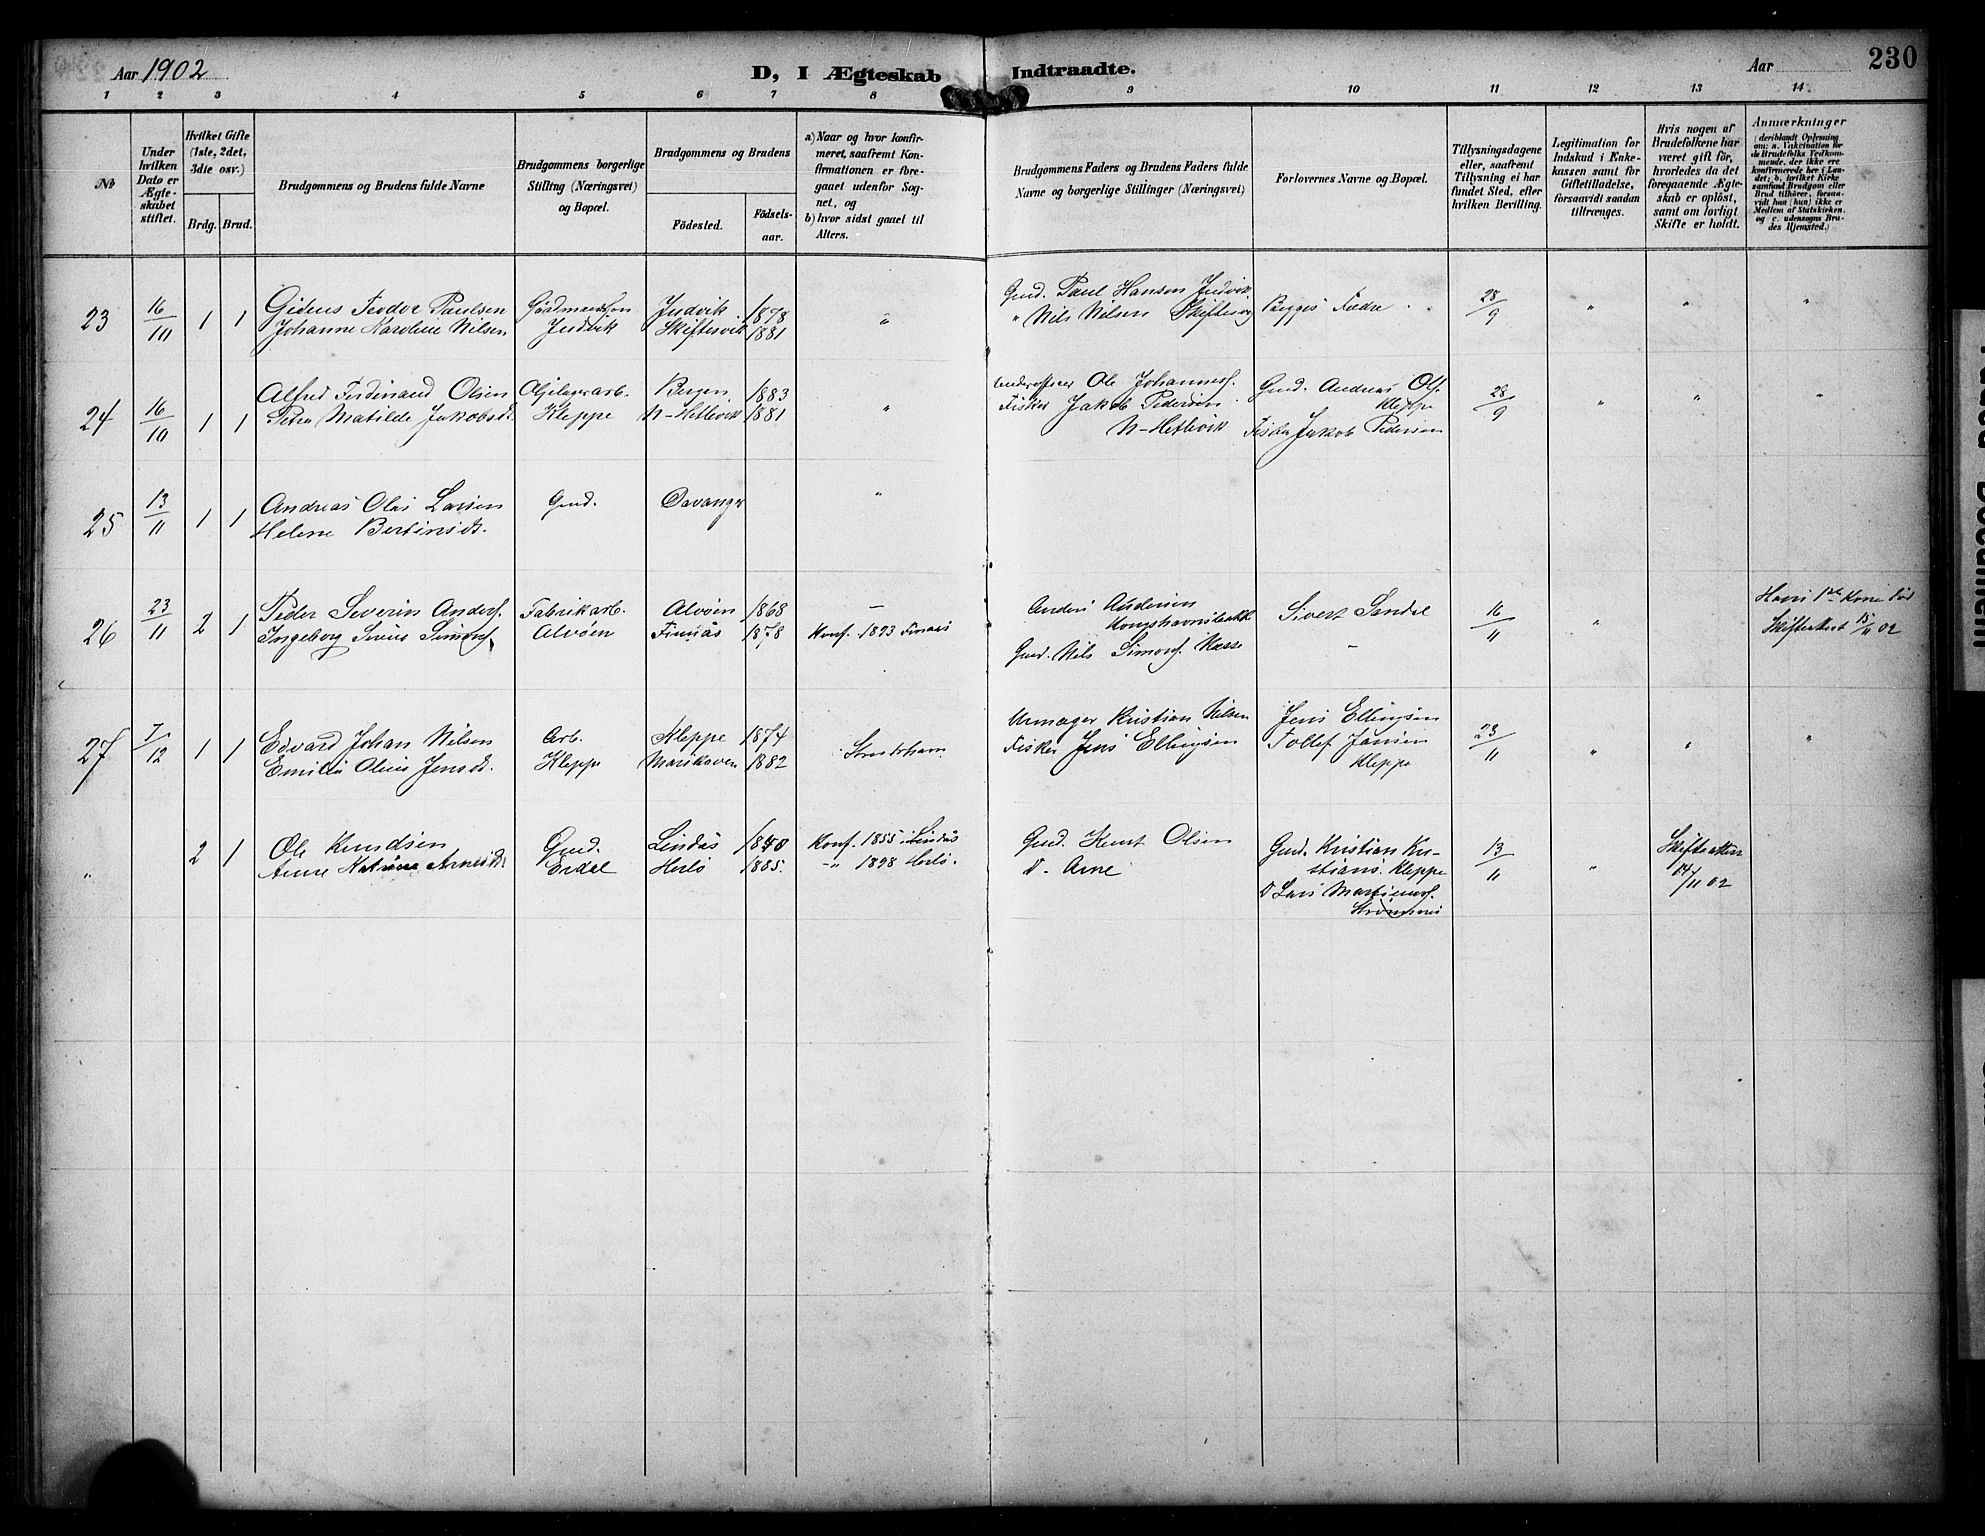 Aar 1902
D, I Ægteskab Indtraadte.
Aar
230
1 2 3 4 5 6 7 8 9 10 11 12 13 14
No
Under hvilken Dato er Ægteskabet stiftet.
Hvilket Gifte (1ste, 2det, 3die osv.)
Brdg. Brud.
Brudgommens og Brudens fulde Navne
Brudgommens borgerlige Stilling (Næringsvei) og Bopæl.
Brudgommens og Brudens
Födested.
Födsels-aar.
a) Naar og hvor konfirmeret, saafremt Konfirmationen er foregaaet udenfor Sognet, og
b) hvor sidst gaaet til Alters.
Brudgommens Faders og Brudens Faders fulde Navne og borgerlige Stillinger (Næringsvei)
Forlovernes Navne og Bopæl.
Tillysningsdagene eller, saafremt Tillysning ei har fundet Sted, efter hvilken Bevilling.
Legitimation for Indskud i Enkekassen samt for Giftetilladelse, forsaavidt saadan tiltrænges.
Hvis nogen af Brudefolkene har været gift för, hvorledes da det foregaaende Ægteskab er oplöst, samt om lovligt Skifte er holdt.
Anmærkninger
(deriblandt Oplysning om: a. Vakcination for de Brudefolks Vedkommende, der ikke ere konfirmerede her i Landet; b. hvilket Kirkesamfund Brudgom eller Brud tilhörer, forsaavidt han (hun) ikke er Medlem af Statskirken, og c. udensogns Brudes Hjemsted.)
23 16/10 1 1 Gideus Teodor Paulsen Gårdmandssøn Indvik 1878 " Gmd. Paul Hansen Indvik Begges Fædre 28/9 " " "
Johanne Karoline Nilsen Indvik Skiftesvik 1881 " Nils Nilsen Skiftesvig
24 16/10 1 1 Alfred Ferdinand Olsen Oljelagerarb. Bergen 1883 " Underofficer Ole Johannesf. Gmd. Andreas Olf. Kleppe 28/9 " " "
Petra Matilde Jakobsdt. Kleppe N-Hetlevik 1881 Fisker Jakob Pedersen N-Hetlevik Fisker Jakob Pedersen
25 13/11 1 1 Andreas Olai Larsen Gmd. Davanger "
Helene Bertinsdt.
26 23/11 2 1 Peder Severin Andersf. Fabrikarb. Alvøen 1868 — Anders Andersen Kongshavnsbakke Sivert Sandal 16/11 " Hans 1ste Kone død
Ingeborg Simonsf. Alvøen Finnås 1878 Konf. 1893 Finnås Gmd. Nils Simonsf. Skifteattest 15/11 02
27 7/12 1 1 Edvard Johan Nilsen Arb. Kleppe 1874 Strudshavn Urmager Kristian Nilsen Jens Ellingsen 23/11 " " "
Emilie Oline Jensdt. Kleppe Marikoven 1882 Fisker Jens Ellingsen Tollef Jansen Kleppe
" 2 1 Ole Knudsen Gmd. Lindås 1840 Konf. 1855 i Lindås Gmd. Knut Olsen Gmd. Kristian Kristians. Kleppe 13/11 " Skifteattest 14/11 02
Anne Katrine Arnesdt. Erdal Herlø 1885. " 1898 Herlø. D. Arne D Lars Martinusf. Strømsnes